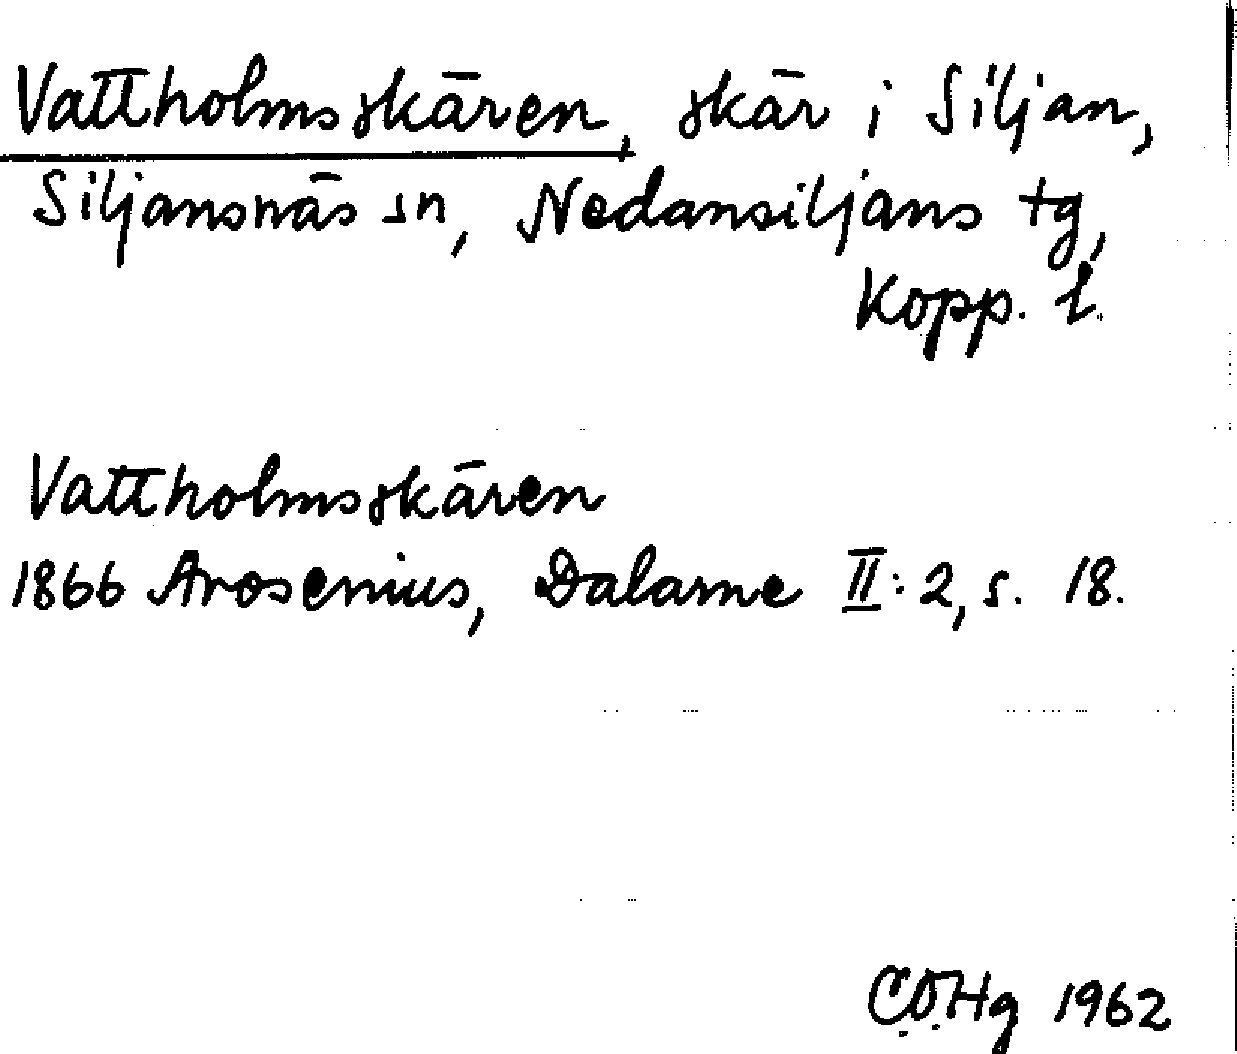 Vattholmsskären, skär i Siljan,
Siljansnäs sn, Nedansiljans tg,
Kopp. l.
Vattholmsskären
1866 Arosenius, Dalarne II: 2, s. 18.
C.O.Hg 1962